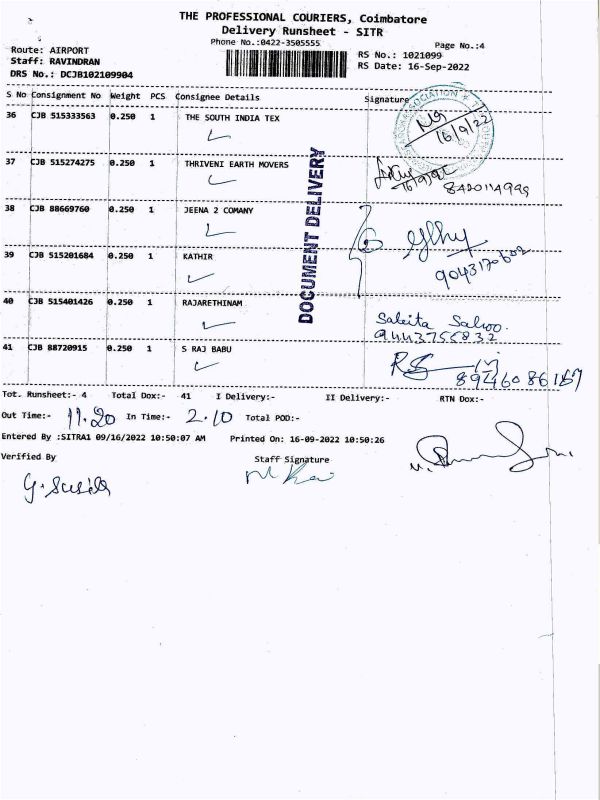 THE PROFESSIONAL COURIERS, Coimbatore
Delivery Runsheet - SITR
Phone No.:0422-3505555
Page No.:4
Route: AIRPORT
RS No.: 1021099
Staff: RAVINDRAN
RS Date: 16-Sep-2022
DRS No.: DCJB102109904
S No Consignment No Weight PCS Consignee Details Signature
36 CJB 515333563 0.250 1 THE SOUTH INDIA TEX
16/9/22
37 CJB 515274275 0.250 1 THRIVENI EARTH MOVERS
DOCUMENT DELIVERY
38 CJB 88669760 0.250 1 JEENA 2 COMANY
39 CJB 515201684 0.250 1 KATHIR
40 CJB 515401426 0.250 1 RAJARETHINAM
9443755832
41 CJB 88720915 0.250 1 S RAJ BABU
Tot. Runsheet:- 4 Total Dox:- 41 I Delivery:- II Delivery:- RTN Dox:-
Out Time:- 11.20 In Time:- 2.10 Total POD:-
Entered By :SITRA1 09/16/2022 10:50:07 AM Printed On: 16-09-2022 10:50:26
Verified By Staff Signature